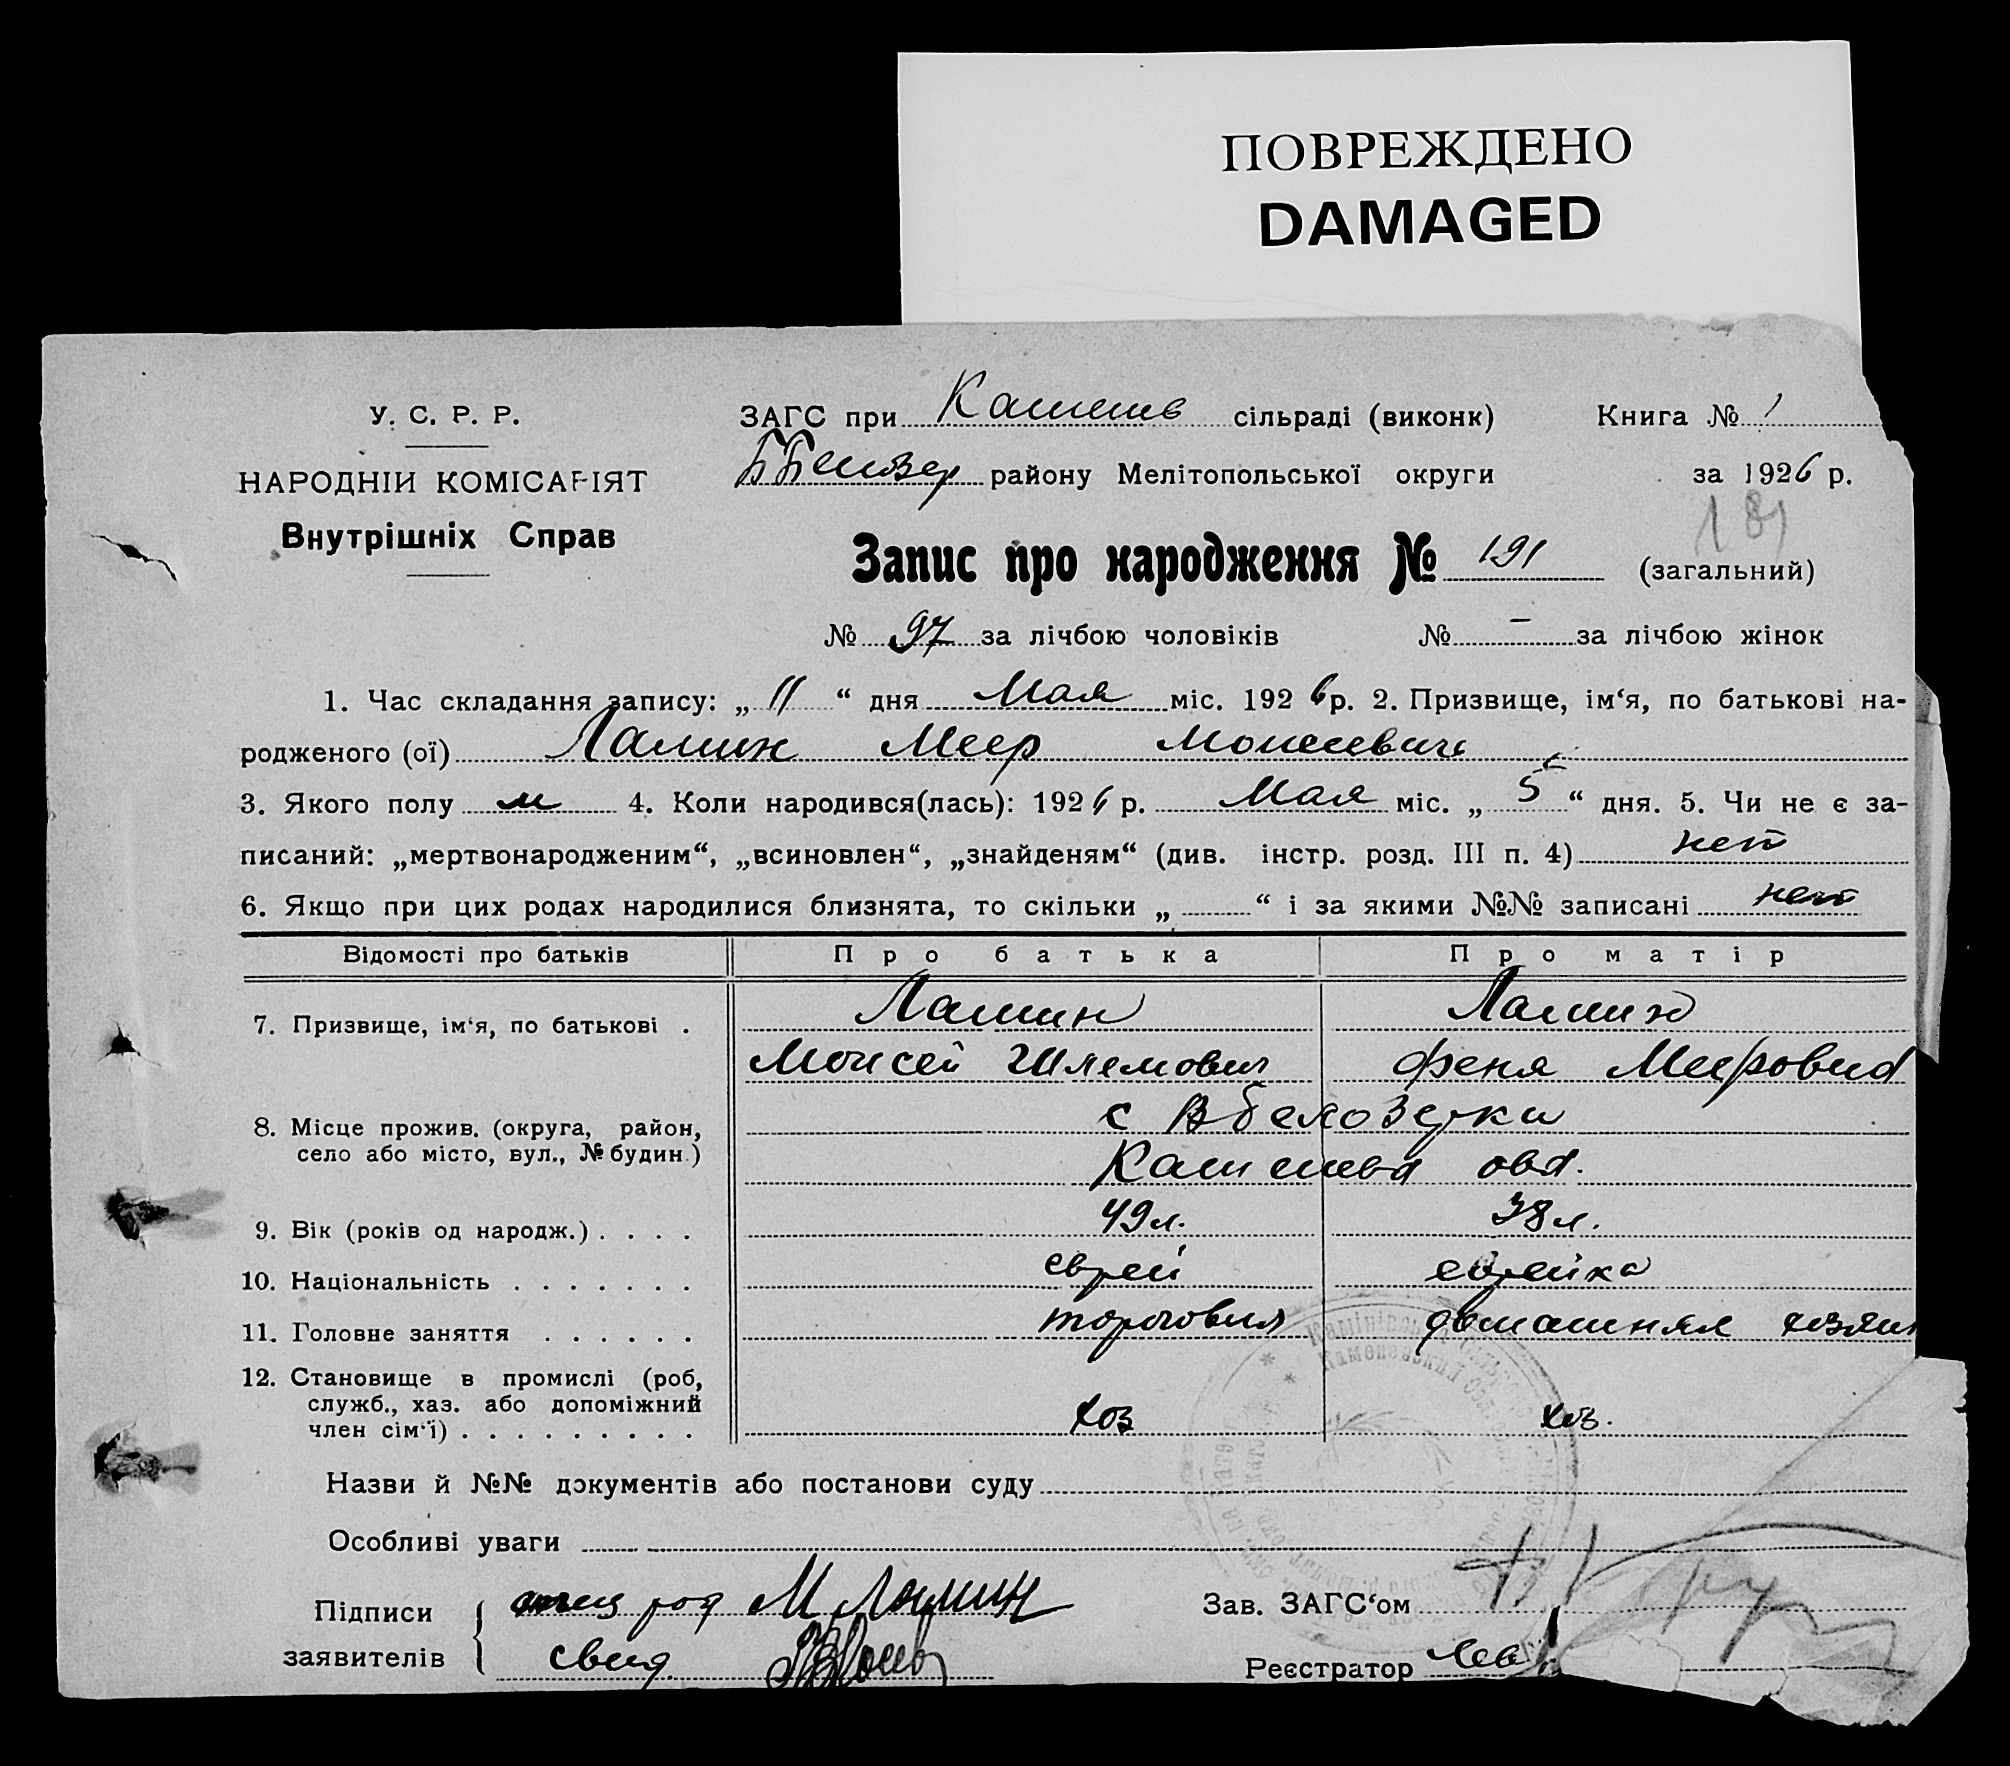 ПОВРЕЖДЕНО
DAMAGED
У. С. Р. Р.
НАРОДНІЙ КОМІСАРІЯТ
Внутрішніх Справ
ЗАГС при сільраді (виконк) Книга № 1
району Мелітопольської округи за 1926 р.
181
Запис про народження № 191 (загальний)
№ 97 за лічбою чоловіків № – за лічбою жінок
1. Час складання запису: „ 11 “ дня Мая міс. 1926 р. 2. Призвище, ім‘я, по батькові на-
родженого (ої) Ламин Меер Моисеевич
3. Якого полу м 4. Коли народився(лась): 1926 р. Мая міс. „ 5 “ дня. 5. Чи не є за-
писаний: „мертвонародженим“, „всиновлен“, „знайденям“ (див. інстр. розд. III п. 4) нет
6. Якщо при цих родах народилися близнята, то скільки „ “ і за якими №№ записані нет
Відомості про батьків Про батька Про матір
7. Призвище, ім‘я, по батькові . Ламин Ламин
Моисей Шлемович Феня Мееровна
8. Місце прожив. (округа, район, с Вбелозерки
село або місто, вул., № будин.)
9. Вік (років од народж.) . . . . 49 л. 38 л.
10. Національність . . . . . . . еврей еврейка
11. Головне заняття . . . . . . торговля домашняя хозяй
12. Становище в промислі (роб,
служб., хаз. або допоміжний хоз хоз.
член сім‘ї) . . . . . . . . .
Назви й №№ документів або постанови суду
Особливі уваги
Підписи отец род М Ламин Зав. ЗАГС‘ом
заявителів свид Реєстратор